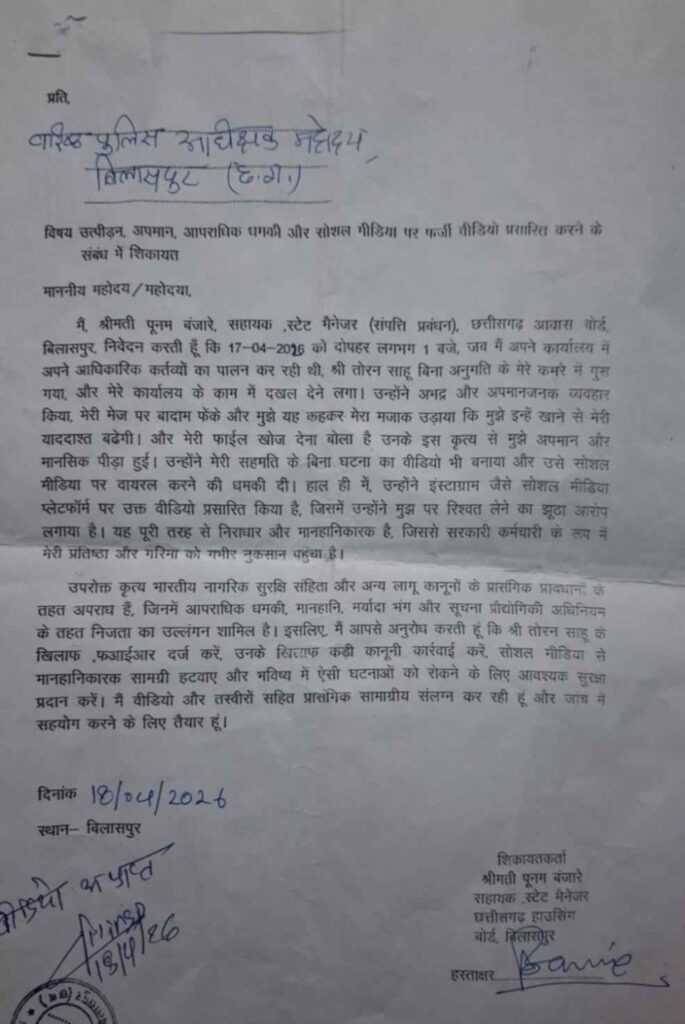 प्रति,
वरिष्ठ पुलिस अधीक्षक महोदय,
बिलासपुर (छ.ग.)
विषय उत्पीड़न, अपमान, आपराधिक धमकी और सोशल मीडिया पर फर्जी वीडियो प्रसारित करने के
संबंध में शिकायत
माननीय महोदय/महोदया,
मैं, श्रीमती पूनम बंजारे, सहायक ,स्टेट मैनेजर (संपत्ति प्रबंधन), छत्तीसगढ़ आवास बोर्ड,
बिलासपुर, निवेदन करती हूँ कि 17-04-2026 को दोपहर लगभग 1 बजे, जब मैं अपने कार्यालय में
अपने आधिकारिक कर्तव्यों का पालन कर रही थी, श्री तोरन साहू बिना अनुगति के मेरे कमरे में घुस
गया, और मेरे कार्यालय के काम में दखल देने लगा। उन्होंने अभद्र और अपमानजनक व्यवहार
किया, मेरी मेज पर बादाम फेंके और मुझे यह कहकर मेरा मजाक उड़ाया कि मुझे इन्हें खाने से मेरी
याददाश्त बढेगी। और मेरी फाईल खोज देना बोला है उनके इस कृत्य से मुझे अपमान और
मानसिक पीड़ा हुई। उन्होंने मेरी सहमति के बिना घटना का वीडियो भी बनाया और उसे सोशल
मीडिया पर वायरल करने की धमकी दी। हाल ही में, उन्होंने इंस्टाग्राम जैसे सोशल मीडिया
प्लेटफॉर्म पर उक्त वीडियो प्रसारित किया है, जिसमें उन्होंने मुझ पर रिश्वत लेने का झूठा आरोप
लगाया है। यह पूरी तरह से निराधार और मानहानिकारक है, जिससे सरकारी कर्मचारी के रूप में
मेरी प्रतिष्ठा और गरिमा को गंभीर नुकसान पहुंचा है।
उपरोक्त कृत्य भारतीय नागरिक सुरक्षि संहिता और अन्य लागू कानूनों के प्रासंगिक प्रावधानों के
तहत अपराध हैं, जिनमें आपराधिक धमकी, मानहानि, मर्यादा भंग और सूचना प्रौद्योगिकी अधिनियम
के तहत निजता का उल्लंगन शामिल है। इसलिए, मैं आपसे अनुरोध करती हूं कि श्री तोरन साहू के
खिलाफ ,फआईआर दर्ज करें, उनके खिलाफ कड़ी कानूनी कार्रवाई करें, सोशल मीडिया से
मानहानिकारक सामग्री हटवाए और भविष्य में ऐसी घटनाओं को रोकने के लिए आवश्यक सुरक्षा
प्रदान करें। मैं वीडियो और तस्वीरों सहित प्रासंगिक सामाग्रीय संलग्न कर रही हूं और जांच में
सहयोग करने के लिए तैयार हूं।
दिनांक 18/04/2026
स्थान– बिलासपुर
वीडियो अप्राप्त
18/4/26
शिकायतकर्ता
श्रीमती पूनम बंजारे
सहायक ,स्टेट मैनेजर
छत्तीसगढ़ हाउसिंग
बोर्ड, बिलासपुर
हस्ताक्षर